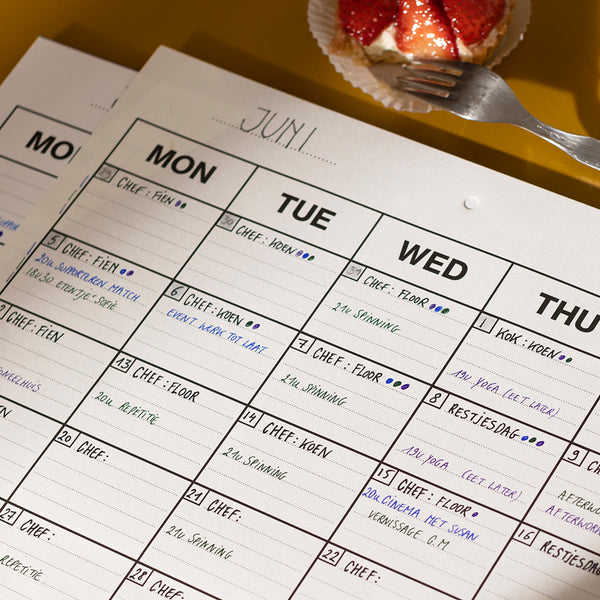 JUNI
MO
MON
TUE
WED
THU
29 CHEF: FIEN
30 CHEF: KOEN
31 CHEF: FLOOR
21u SPINNING
1 KOK: KOEN
19u YOGA (EET LATER)
5 CHEF: FIEN
20u SUPPORTEREN MATCH
18u30 ETENTJE SOFIE
6 CHEF: KOEN
EVENT WERK TOT LAAT
7 CHEF: FLOOR
21u SPINNING
8 RESTJESDAG
19u YOGA (EET LATER)
9 CH
AFTERWO
AFTERWORK
2 CHEF: FIEN
13 CHEF: FLOOR
20u REPETITIE
14 CHEF: KOEN
21u SPINNING
15 CHEF: FLOOR
20u CINEMA MET SUSAN
VERNISSAGE G.M.
16 RESTJESDAG
20 CHEF:
21 CHEF:
21u SPINNING
22 CHEF:
27 CHEF:
REPETITIE
28 CHEF: